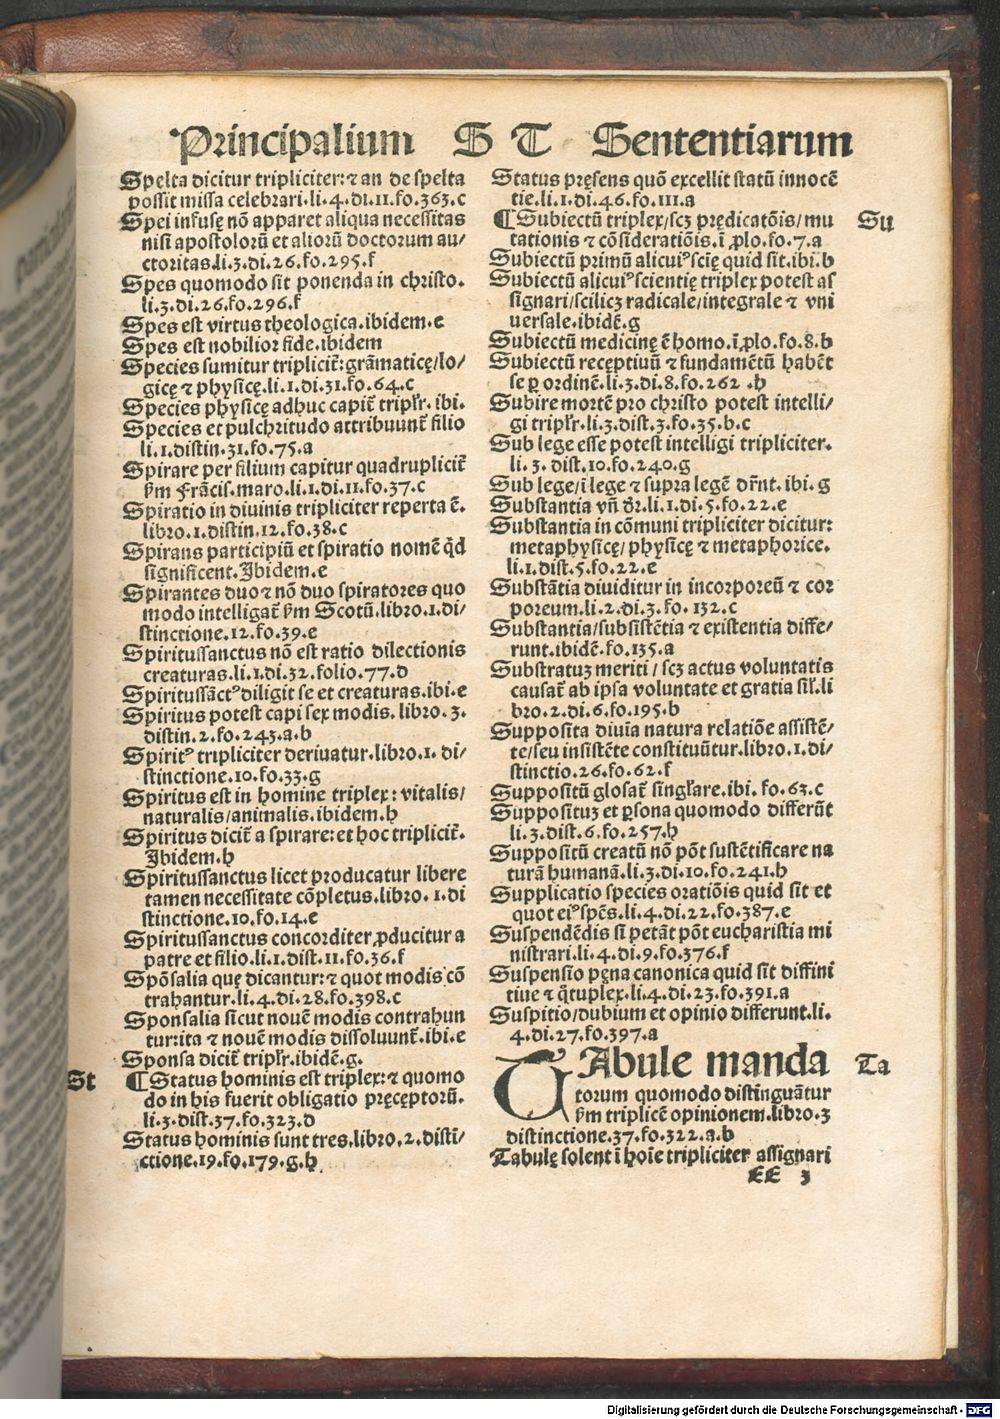 Principalium S T Sententiarum
Spelta dicitur tripliciter:⁊ an de spelta
possit missa celebrari.li.4.di.11.fo.363.c
Spei infusę nō apparet aliqua necessitas
nisi apostolorū et aliorū doctorum au/
ctoritas.li.3.di.26.fo.295.f
Spes quomodo sit ponenda in christo.
li.3.di.26.fo.296.f
Spes est virtus theologica.ibidem.e
Spes est nobilior fide.ibidem
Species sumitur triplicit̄:grāmaticę/lo/
gicę ⁊ physicę.li.1.di.31.fo.64.c
Species physicę adhuc capit̄ triplr̄. ibi.
Species et pulchritudo attribuunt̄ filio
li.1.distin.31.fo.75.a
Spirare per filium capitur quadruplicit̄
ẜm Frācis.maro.li.1.di.11.fo.37.c
Spiratio in diuinis tripliciter reperta ē.
libro.1.distin.12.fo.38.c
Spirans participiū et spiratio nomē qd̄
significent.Ibidem.e
Spirantes duo ⁊ nō duo spiratores quo
modo intelligat̄ ẜm Scotū.libro.1.di/
stinctione.12.fo.39.e
Spiritussanctus nō est ratio dilectionis
creaturas.li.1.di.32.folio.77.d
Spiritussāctꝰ diligit se et creaturas.ibi.e
Spiritus potest capi sex modis. libro.3.
distin.2.fo.243.a.b
Spiritꝰ tripliciter deriuatur.libro.1. di/
stinctione.10.fo.33.g
Spiritus est in homine triplex: vitalis/
naturalis/animalis.ibidem.h
Spiritus dicit̄ a spirare:et hoc triplicit̄.
Ibidem.h
Spiritussanctus licet producatur libere
tamen necessitate cōpletus.libro. 1.di
stinctione.10.fo.14.e
Spiritussanctus concorditer ꝓducitur a
patre et filio.li.1.dist.11.fo.36.f
Spōsalia quę dicantur:⁊ quot modis cō
trahantur.li.4.di.28.fo.398.c
Sponsalia sicut nouē modis contrahun
tur:ita ⁊ nouē modis dissoluunt̄.ibi.e
Sponsa dicit̄ triplr̄.ibidē.g.
St
¶Status hominis est triplex:⁊ quomo
do in his fuerit obligatio pręcęptorū.
li.3.dist.37.fo.323.d
Status hominis sunt tres.libro.2.disti/
ctione.19.fo.179.g.h
Status pręsens quō excellit statū innocē
tie.li.1.di.46.fo.111.a
Su
¶Subiectū triplex/scꝫ prędicatōis/mu
tationis ⁊ cōsideratiōis.ī ꝓlo.fo.7.a
Subiectū primū alicuiꝰ scię quid sit.ibi.b
Subiectū alicuiꝰ scientię triplex potest as
signari/scilicꝫ radicale/integrale ⁊ vni
uersale.ibidē.g
Subiectū medicinę ē homo.ī ꝓlo.fo.8.b
Subiectū receptiuū ⁊ fundamētū habēt
se ꝑ ordinē.li.3.di.8.fo.262 .h
Subire mortē pro christo potest intelli/
gi triplr̄.li.3.dist.3.fo.35.b.c
Sub lege esse potest intelligi tripliciter.
li. 3. dist.10.fo.240.g
Sub lege/ī lege ⁊ supra legē dr̄nt. ibi. g
Substantia vn̄ dr̄.li.1.di.5.fo.22.e
Substantia in cōmuni tripliciter dicitur:
metaphysicę/ physicę ⁊ metaphorice.
li.1.dist.5.fo.22.e
Substātia diuiditur in incorporeū ⁊ cor
poreum.li.2.di.3.fo. 132.c
Substantia/subsistētia ⁊ existentia diffe/
runt.ibidē.fo.135.a
Substratuꝫ meriti / scꝫ actus voluntatis
causat̄ ab ipsa voluntate et gratia sil̄.li
bro.2.di.6.fo.195.b
Supposita diuia natura relatiōe assistē/
te/seu insistēte constituūtur.libro.1.di/
stinctio.26.fo.62.f
Suppositū glosat̄ singl̄are.ibi. fo.63.c
Suppositus et ꝑsona quomodo differūt
li.3.dist.6.fo.257.h
Suppositū creatū nō pōt sustētificare na
turā humanā.li.3.di.10.fo.241.h
Supplicatio species oratiōis quid sit et
quot eiꝰ spēs.li.4.di.22.fo.387.e
Suspendēdis si petāt pōt eucharistia mi
nistrari.li.4.di.9.fo.376.f
Suspensio pęna canonica quid sit diffini
tiue ⁊ q̄tuplex.li.4.di.23.fo.391.a
Suspitio/dubium et opinio differunt.li.
4.di.27.fo.397.a
Ta
TAbule manda
torum quomodo distinguātur
ẜm triplicē opinionem.libro.3
distinctione.37.fo.322.a.b
Tabulę solent ī hoīe tripliciter assignari
EE 3
Digitalisierung gefördert durch die Deutsche Forschungsgemeinschaft - DFG